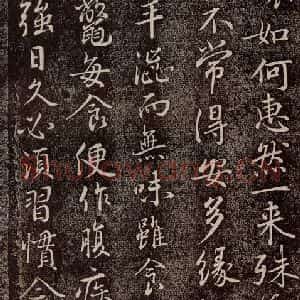 如何惠然一来殊
不常得安多緣
羊澀而無味雖食
鼈每食便作腹疾
強日久必須習慣今